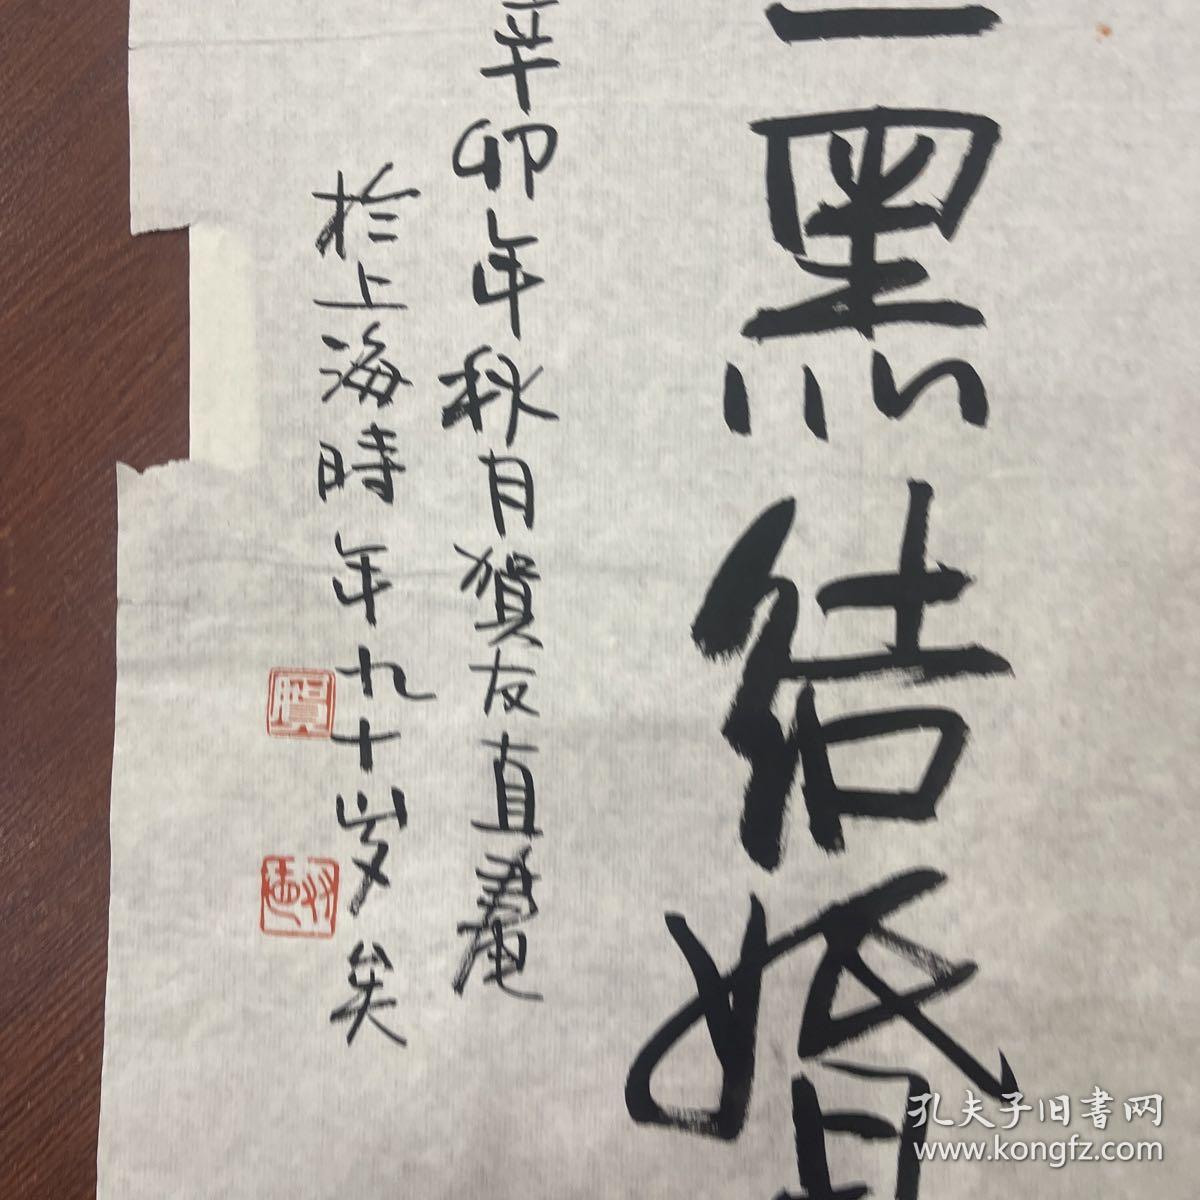 二黑结婚
辛卯年秋月賀友直
於上海時年九十岁矣
賀
孔夫子旧書网
www.kongfz.com